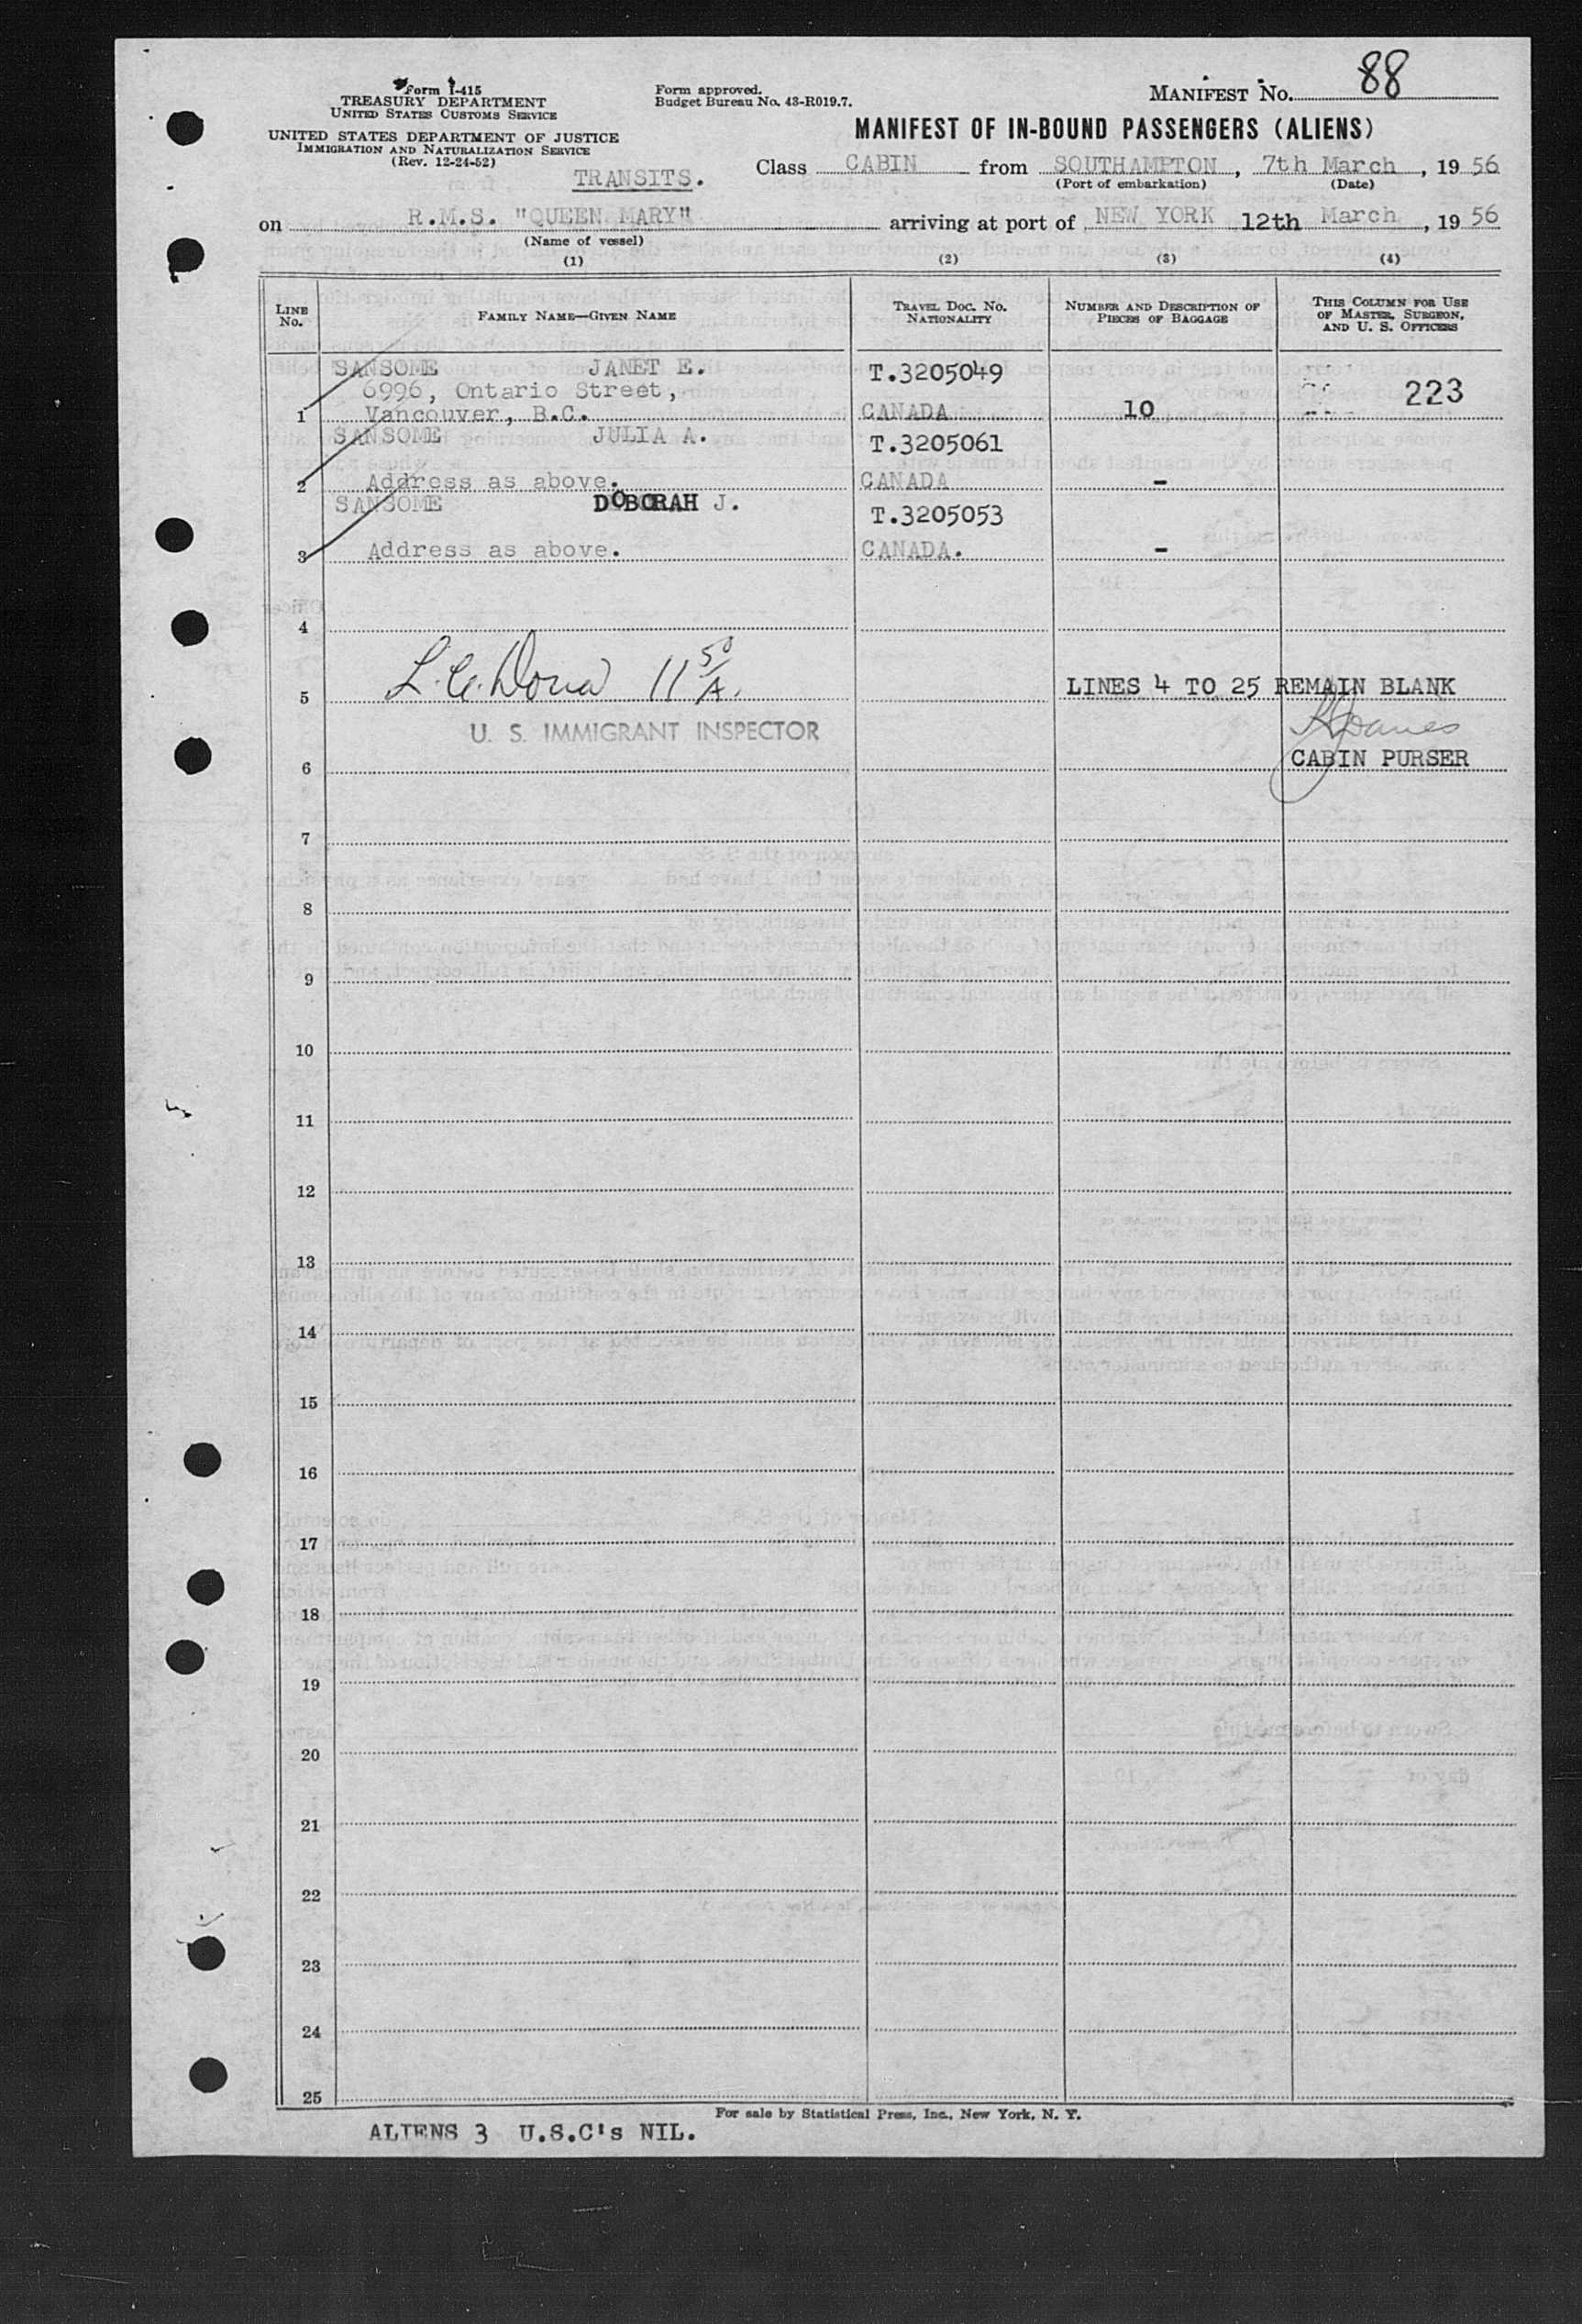 Form I-415
TREASURY DEPARTMENT
UNITED STATES CUSTOMS SERVICE
UNITED STATES DEPARTMENT OF JUSTICE
IMMIGRATION AND NATURALIZATION SERVICE
(Rev. 12-24-52)
Form approved.
Budget Bureau No. 43-R019.7.
MANIFEST No. 88
MANIFEST OF IN-BOUND PASSENGERS (ALIENS)
TRANSITS.
Class CABIN from SOUTHAMPTON, 7th March, 1956
(Port of embarkation) (Date)
on R.M.S. "QUEEN MARY" arriving at port of NEW YORK 12th March, 1956
(Name of vessel)
(1) (2) (3) (4)
LINE No. FAMILY NAME—GIVEN NAME TRAVEL DOC. No. NATIONALITY NUMBER AND DESCRIPTION OF PIECES OF BAGGAGE THIS COLUMN FOR USE OF MASTER, SURGEON, AND U. S. OFFICERS
SANSOME JANET E. T.3205049
6996, Ontario Street, 223
1 Vancouver, B.C. CANADA 10
SANSOME JULIA A. T.3205061
2 Address as above. CANADA -
SANSOME DOBORAH J. T.3205053
3 Address as above. CANADA. -
4
5 11 50/A. LINES 4 TO 25 REMAIN BLANK
U. S. IMMIGRANT INSPECTOR
6 CABIN PURSER
7
8
9
10
11
12
13
14
15
16
17
18
19
20
21
22
23
24
25
For sale by Statistical Press, Inc., New York, N. Y.
ALIENS 3 U.S.C's NIL.